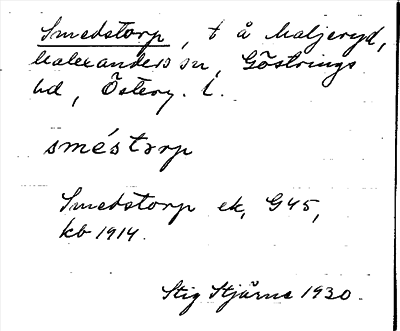 Smedstorp, t å Maljeryd,
Malexanders sn, Göstrings
hd, Österg. l.
smés torp
Smedstorp ek, G45,
kb 1914.
Stig Stjärne 1930.